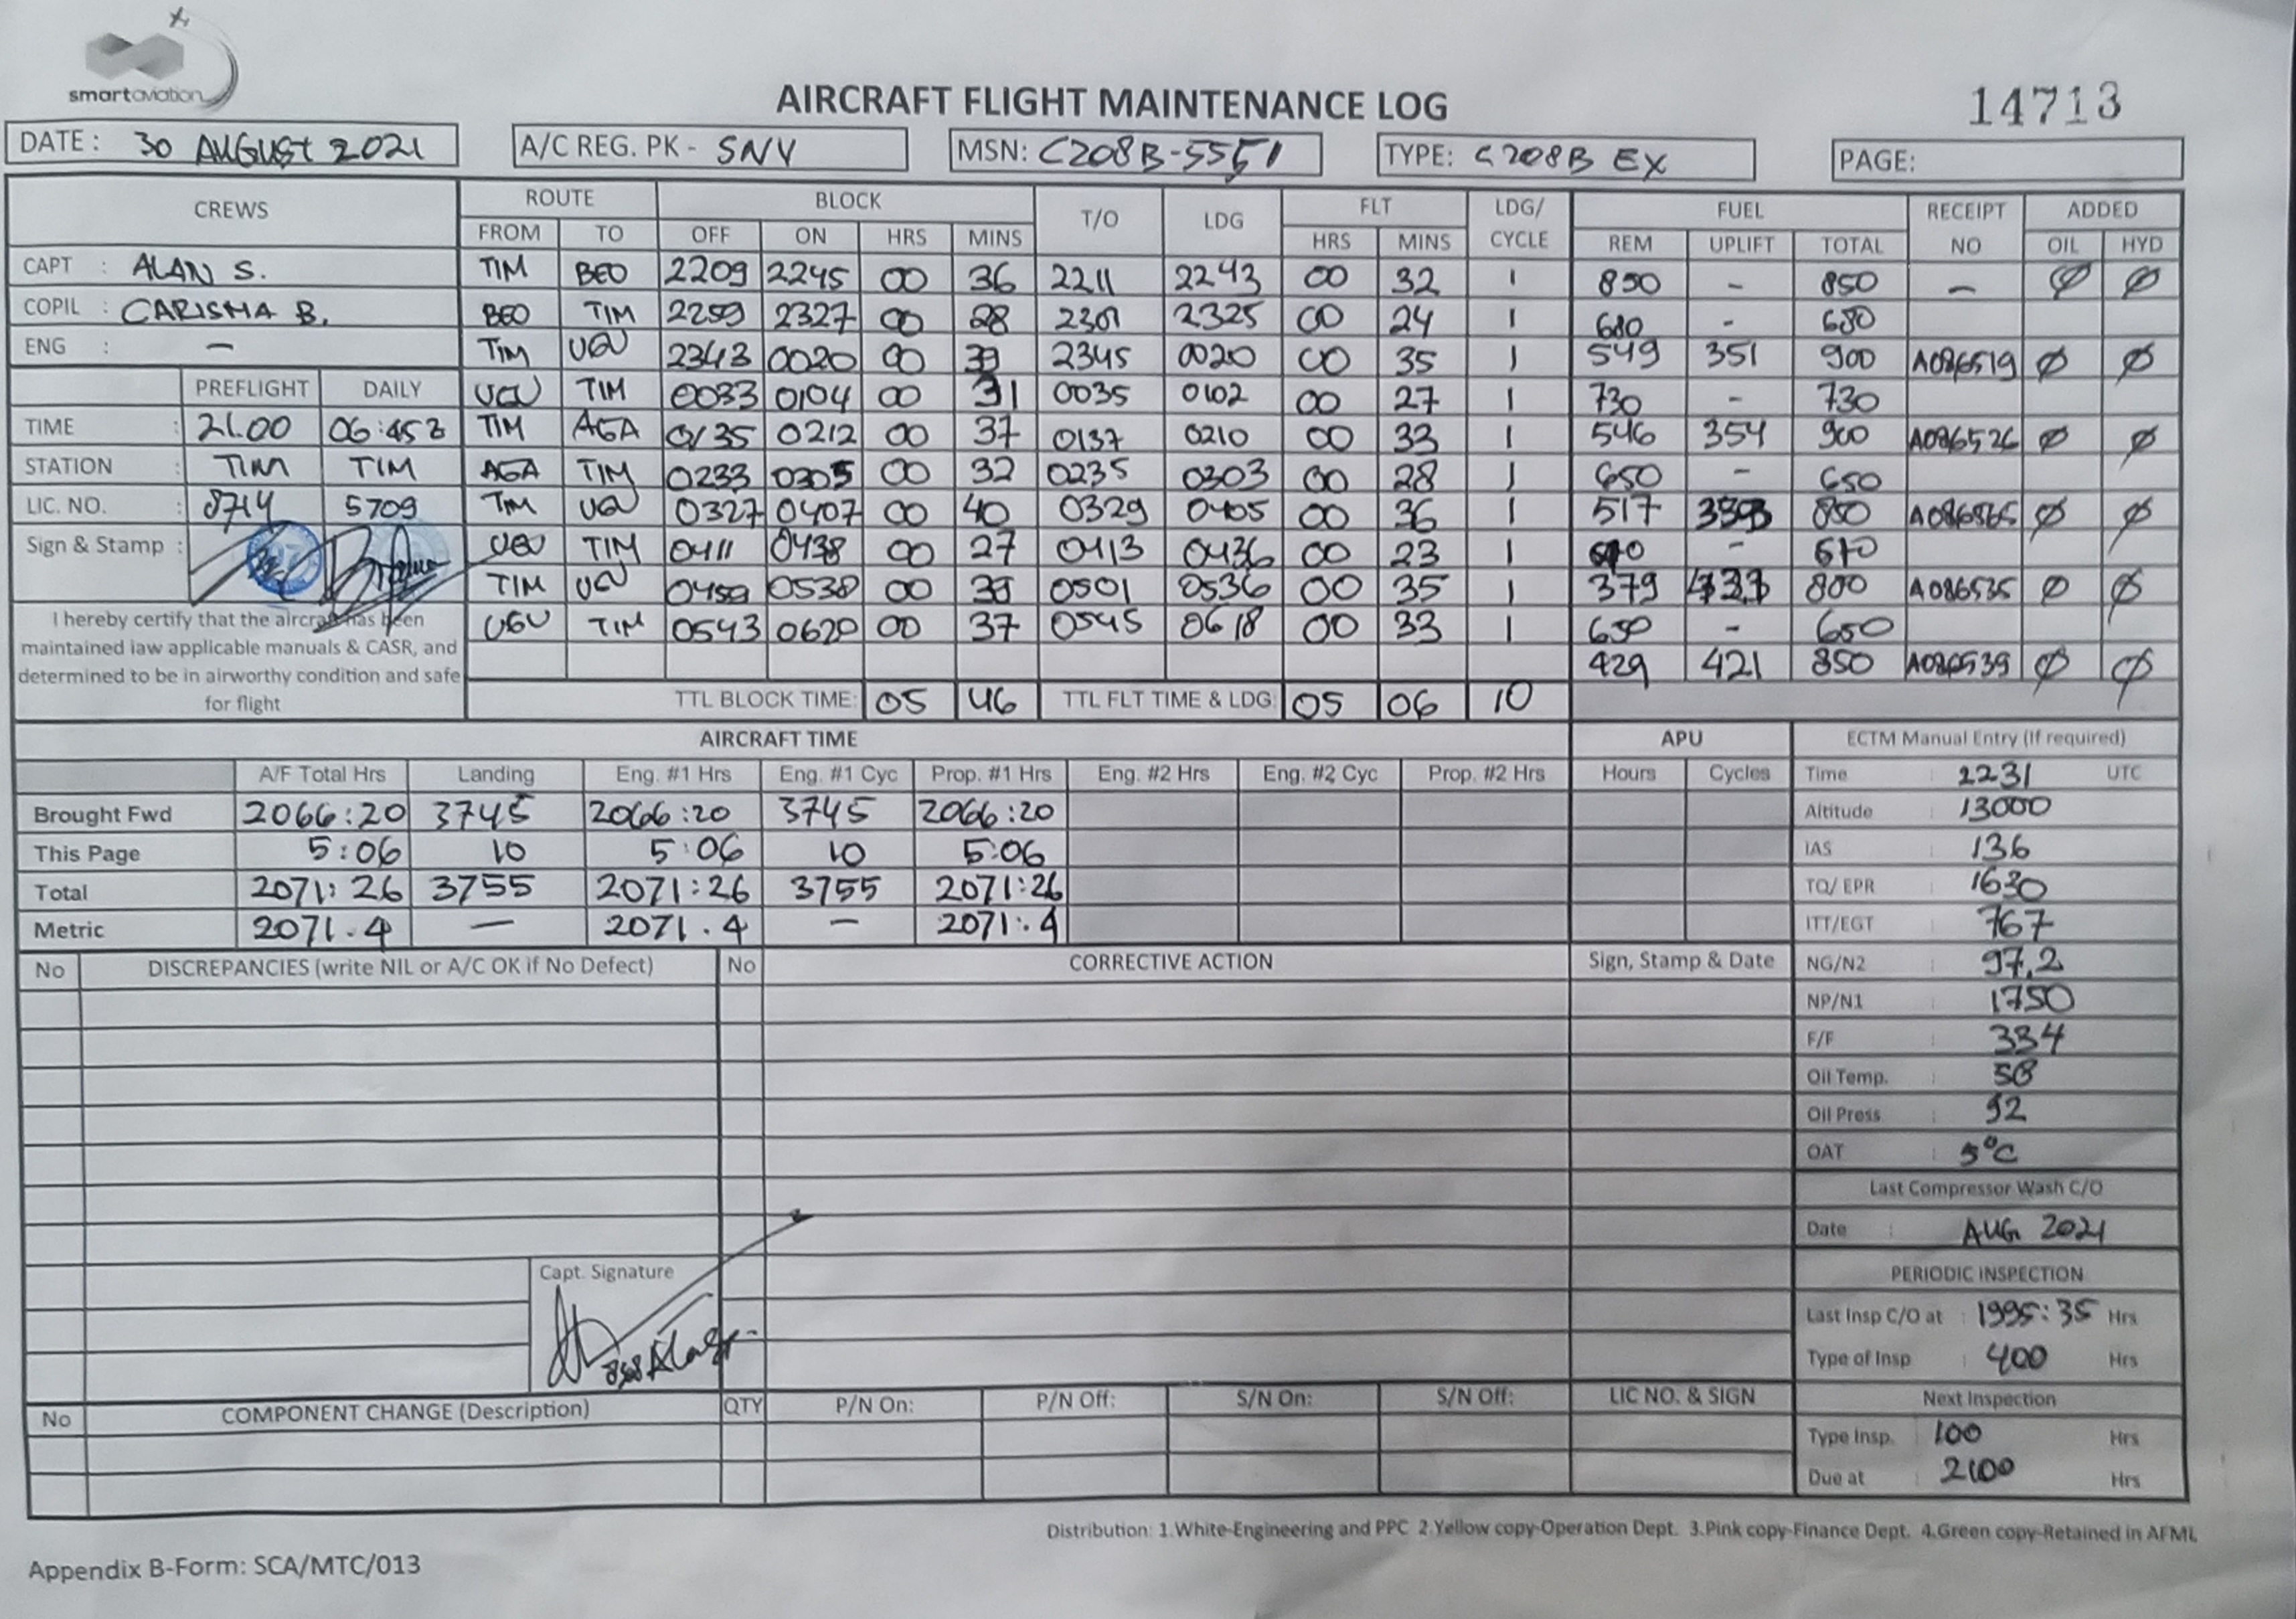 smartaviation
AIRCRAFT FLIGHT MAINTENANCE LOG
14713
DATE : 30 AUGUST 2021 A/C REG. PK - SNY MSN: C208B-5551 TYPE: C208B EX PAGE:
CREWS ROUTE BLOCK T/O LDG FLT LDG/ CYCLE FUEL RECEIPT NO ADDED
FROM TO OFF ON HRS MINS HRS MINS REM UPLIFT TOTAL OIL HYD
CAPT : ALAN S. TIM BEO 2209 2245 00 36 2211 2243 00 32 1 850 - 850 - Ø Ø
COPIL : CARISMA B. BEO TIM 2259 2327 00 28 2301 2325 00 24 1 680 - 680
ENG : - TIM UGU 2343 0020 00 2345 0020 00 35 1 549 351 900 A086519 Ø Ø
PREFLIGHT DAILY UGU TIM 0033 0104 00 31 0035 0102 00 27 1 730 - 730
TIME : 21.00 06:45Z TIM AGA 0135 0212 00 37 0137 0210 00 33 1 546 354 900 A086526 Ø Ø
STATION : TIM TIM AGA TIM 0233 0305 00 32 0235 0303 00 28 1 650 - 650
LIC. NO. : 8714 5709 TIM UGU 0327 0407 00 40 0329 0405 00 36 1 517 Ø Ø
Sign & Stamp : UGU TIM 0411 0438 00 27 0413 0436 00 23 1 - 610
TIM UGU 0459 0538 00 39 0501 0536 00 35 1 379 800 A086535 Ø Ø
I hereby certify that the aircraft has been maintained iaw applicable manuals & CASR, and determined to be in airworthy condition and safe for flight
UGU TIM 0543 0620 00 37 0545 0618 00 33 1 650 - 650
429 421 850 A086539 Ø Ø
TTL BLOCK TIME: 05 46 TTL FLT TIME & LDG: 05 06 10
AIRCRAFT TIME APU ECTM Manual Entry (If required)
A/F Total Hrs Landing Eng. #1 Hrs Eng. #1 Cyc Prop. #1 Hrs Eng. #2 Hrs Eng. #2 Cyc Prop. #2 Hrs Hours Cycles Time : 2231 UTC
Brought Fwd 2066:20 3745 2066:20 3745 2066:20 Altitude : 13000
This Page 5:06 10 5:06 10 5:06 IAS : 136
Total 2071:26 3755 2071:26 3755 2071:26 TQ/ EPR : 1630
Metric 2071.4 - 2071.4 - 2071.4 ITT/EGT : 767
No DISCREPANCIES (write NIL or A/C OK if No Defect) No CORRECTIVE ACTION Sign, Stamp & Date NG/N2 : 97,2
NP/N1 : 1750
F/F : 334
Oil Temp. : 58
Oil Press : 92
OAT : 5°C
Last Compressor Wash C/O
Date : AUG 2021
Capt. Signature
PERIODIC INSPECTION
Last Insp C/O at : 1995:35 Hrs
Type of Insp : 400 Hrs
No COMPONENT CHANGE (Description) QTY P/N On: P/N Off: S/N On: S/N Off: LIC NO. & SIGN Next Inspection
Type Insp. : 100 Hrs
Due at : 2100 Hrs
Distribution: 1.White-Engineering and PPC 2.Yellow copy-Operation Dept. 3.Pink copy-Finance Dept. 4.Green copy-Retained in AFML
Appendix B-Form: SCA/MTC/013